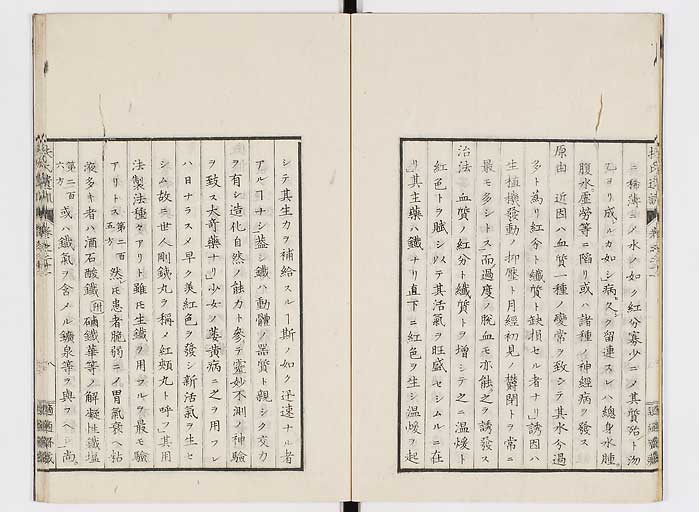 ニ稀薄ニメ水ノ如ク紅分寡少ニメ其質殆ト泑
乙ヨリ成ルカ如シ病久ク留連スレハ總身水腫
腹水虛勞等ニ陷リ或ハ諸種ノ神經病ヲ發ス
原由 近因ハ血質一種ノ變常ヲ致シテ其水分過
多ト為リ紅分ト纖質ト缺損セル者ナリ誘因ハ
生植機發動ノ抑壓ト月經初見ノ欝閉トヲ常ニ
最モ多シトス而過度ノ脫血モ亦能之ヲ誘發ス
治法 血質ノ紅分ト纖質トヲ增シテ之ニ温煖ト
紅色トヲ賦シ以テ其活氣ヲ旺盛セシムルニ在
リ其主藥ハ鐵ナリ直下ニ紅色ヲ生シ温煖ヲ起
シテ其生力ヲ補給スルヿ斯ノ如ク迅速ナル者
アルヿナシ蓋シ鐵ハ動體ノ器質ト親シク交力
ヲ有シ造化自然ノ能力ト參テ靈妙不測ノ神驗
ヲ致ス大奇藥ナリ少女ノ萎黃病ニ之ヲ用フレ
ハ日ナラスメ早ク美紅色ヲ發シ新活氣ヲ生セ
シム故ニ世人剛鐵丸ヲ稱メ紅頰丸ト呼フ其用
法製法種々アリト雖モ生鐵ヲ用フルヲ最モ驗
アリトス 第二百五方 然ヒ患者脆弱ニメ胃氣衰ヘ粘
液多キ者ハ酒石酸鐵 附 硇鐵華等ノ解凝性鐵塩
第二百六方 或ハ鐵氣ヲ含メル鐵泉等ヲ與フヘシ尚
八